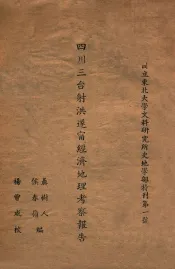 國立東北大學文科研究所史地學部特刊第一號
四川三台射洪遂甯經濟地理考察報告
孟樹人
侯春嶺 編
楊曾威校